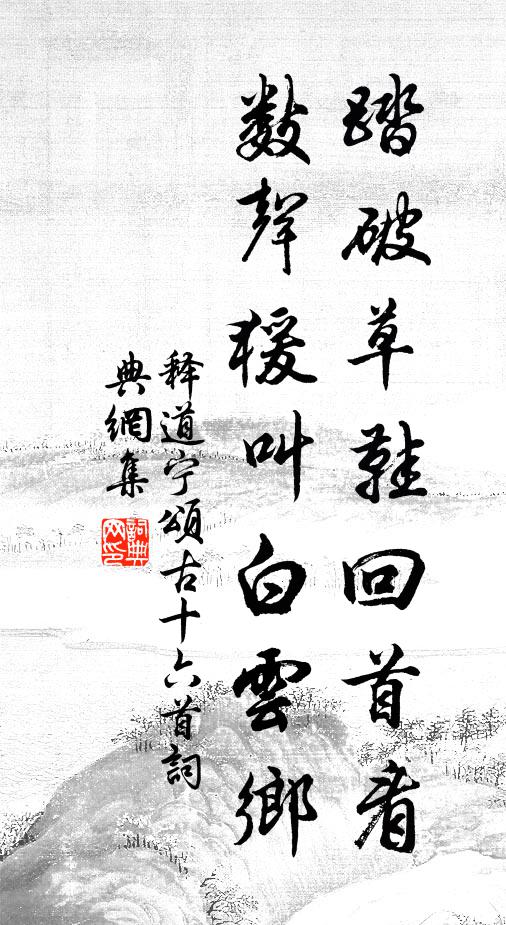 踏破草鞋回首看
数聲猨叫白雲鄉
释道宁頌古十六首詞
典網集
詞典
网印